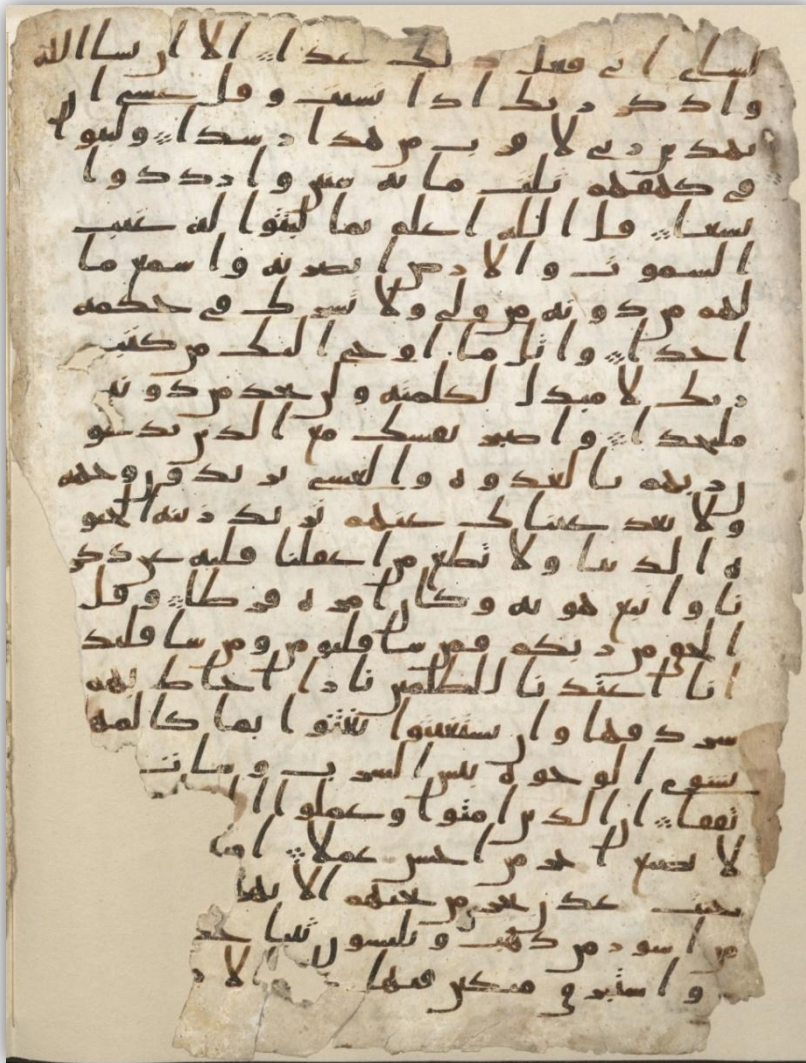 لشاى انى فعل ذلك غدا الا ان يشا الله
واذكر ربك اذا نسيت وقل عسى ان
يهدين ربى لاقرب من هذا رشدا ولبثوا
فى كهفهم ثلث مايه سنين وازددوا
تسعا قل الله اعلم بما لبثوا له غيب
السموت والارض ابصر به واسمع ما
لهم من دونه من ولى ولا يشرك فى حكمه
احدا واتل ما اوحى اليك من كتب
ربك لا مبدل لكلمته ولن تجد من دونه
ملتحدا واصبر نفسك مع الذين يدعو
ن ربهم بالغدوه والعشى يريدون وجهه
ولا تعد عيناك عنهم تريد زينه الحيو
ه الدنيا ولا تطع من اغفلنا قلبه عن ذكر
نا واتبع هويه وكان امره فرطا وقل
الحق من ربكم فمن شا فليومن ومن شا فليك
انا اعتدنا للظلمين نارا احاط بهم
سردقها وان يستغيثوا يغثوا بما كالمه
يشوى الوجوه بيس الشرب وسات
تفقا ان الذين امنوا وعملوا ا
لا نضيع اجر من احسن عملا
جنت عدن تجرى من تحتهم الانه
من اسور من ذهب ويلبسون ثيبا خض
واستبرق متكين فيها الا